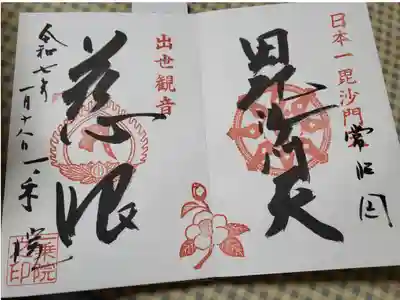 日本一毘沙門
毘沙門天
常陸国
出世観音
慈眼
令和七年
一月
一乗院
一乗院印